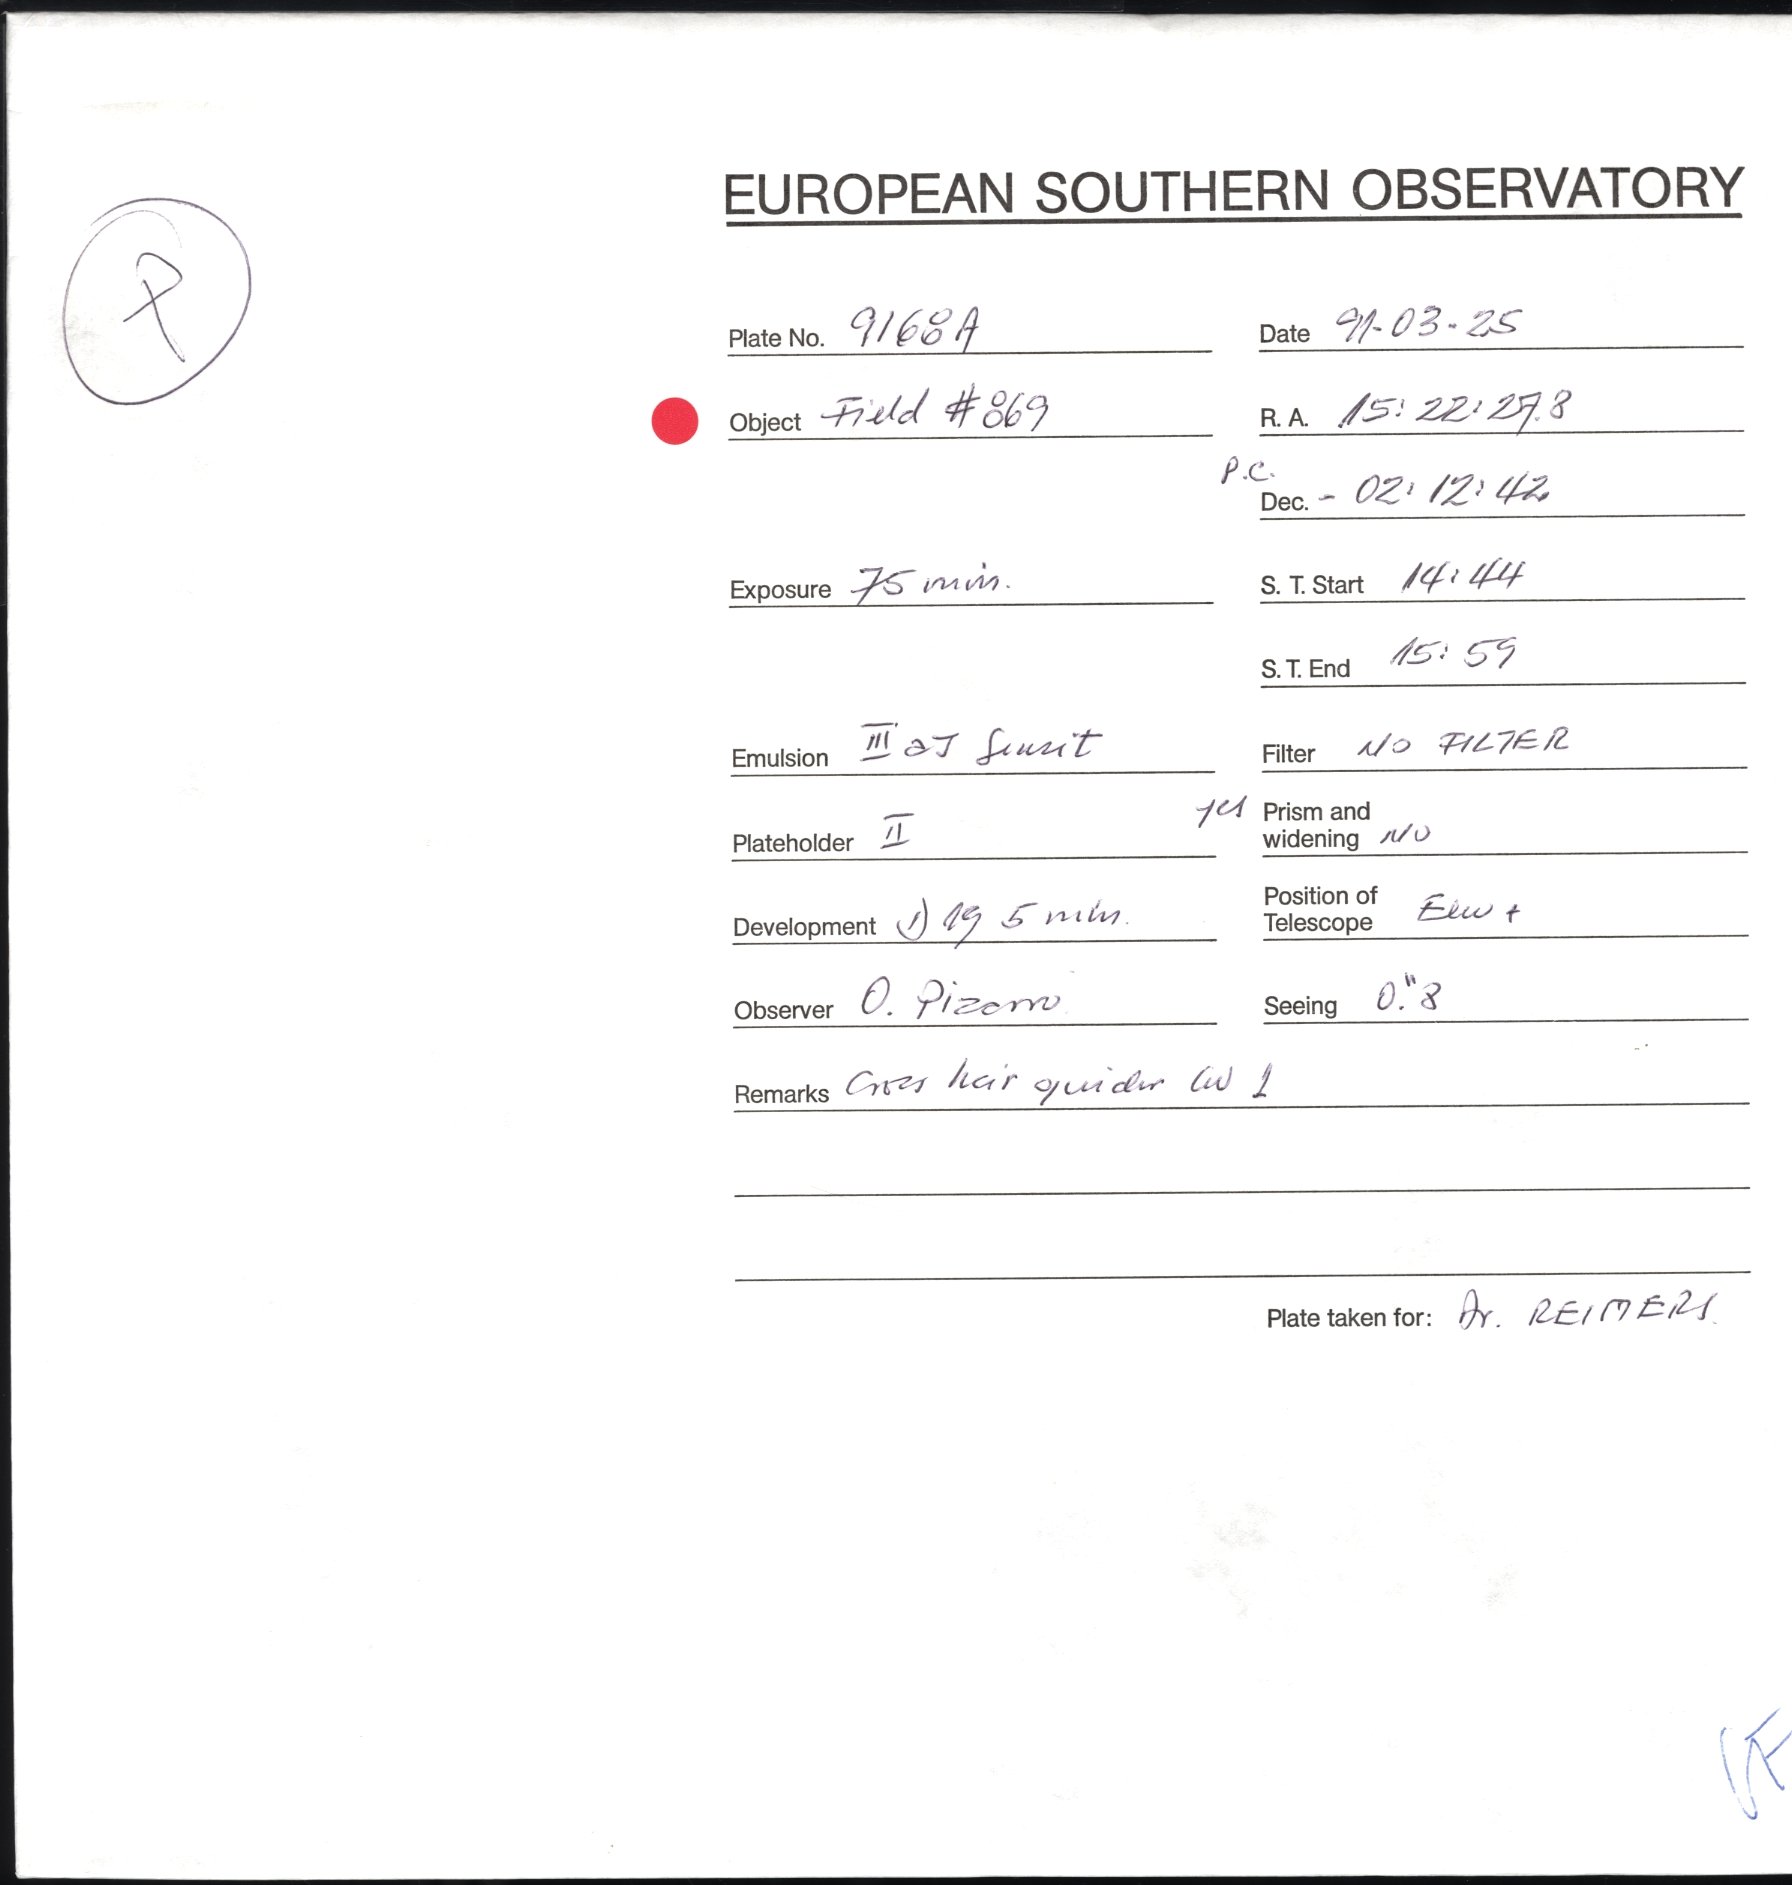 EUROPEAN SOUTHERN OBSERVATORY
Plate No. 9168A
Date 91-03-25
Object Field #869
R. A. 15:22:27.8
P.C.
Dec. - 02:12:42
Exposure 75 min.
S. T. Start 14:44
S. T. End 15:59
Emulsion III aJ sensit
Filter NO FILTER
Plateholder II
yes Prism and
widening NO
Development 1) 19 5 min.
Position of
Telescope
Observer O. Pizarro
Seeing 0."8
Remarks Cross hair guider W 1
Plate taken for: Dr. REIMERS